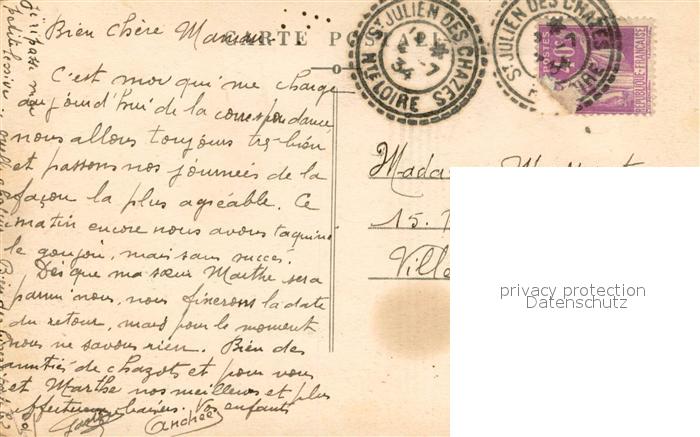 CARTE POSTALE
Bien Chère Maman.
C'est moi qui me charge
aujourd'hui de la correspondance,
nous allons toujours très-bien
et passons nos journées de la
façon la plus agréable. Ce
matin encore nous avons taquiné
le goujon, mais sans succès.
Dès que ma sœur Marthe sera
parmi nous, nous fixerons la date
du retour, mais pour le moment
nous ne savons rien. Bien des
amitiés de chazots et pour vous
et Marthe nos meilleurs et plus
affectueux baisers. Vos enfants
Andrée
ST JULIEN DES CHAZES
7
34
HTE LOIRE
ST JULIEN DES CHAZES
POSTES
40c
REPUBLIQUE FRANÇAISE
Mada
15.
Ville
privacy protection
Datenschutz